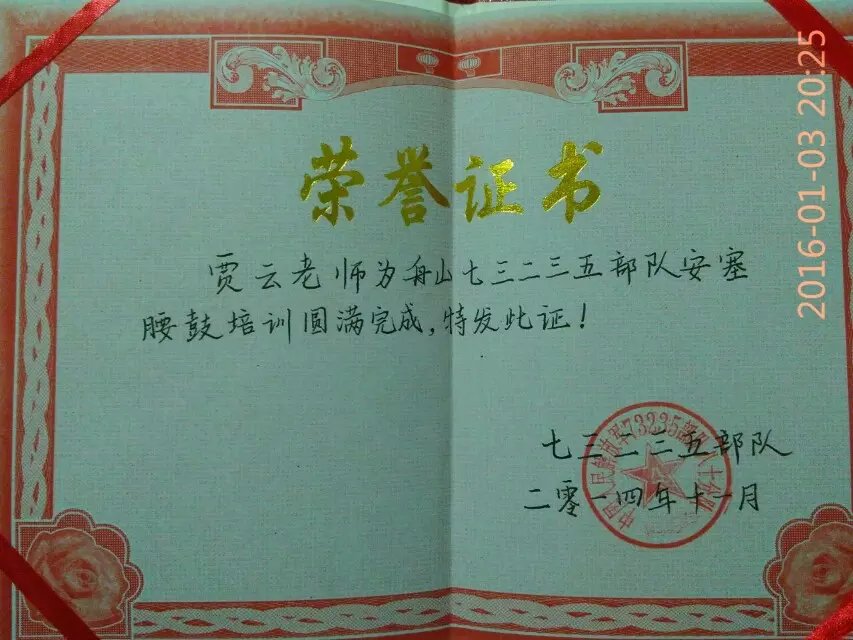 荣誉证书
贾云老师为舟山七三二三五部队安塞
腰鼓培训圆满完成,特发此证!
七三二三五部队
二零一四年十一月
中国人民解放军73235部队
2016-01-03 20:25